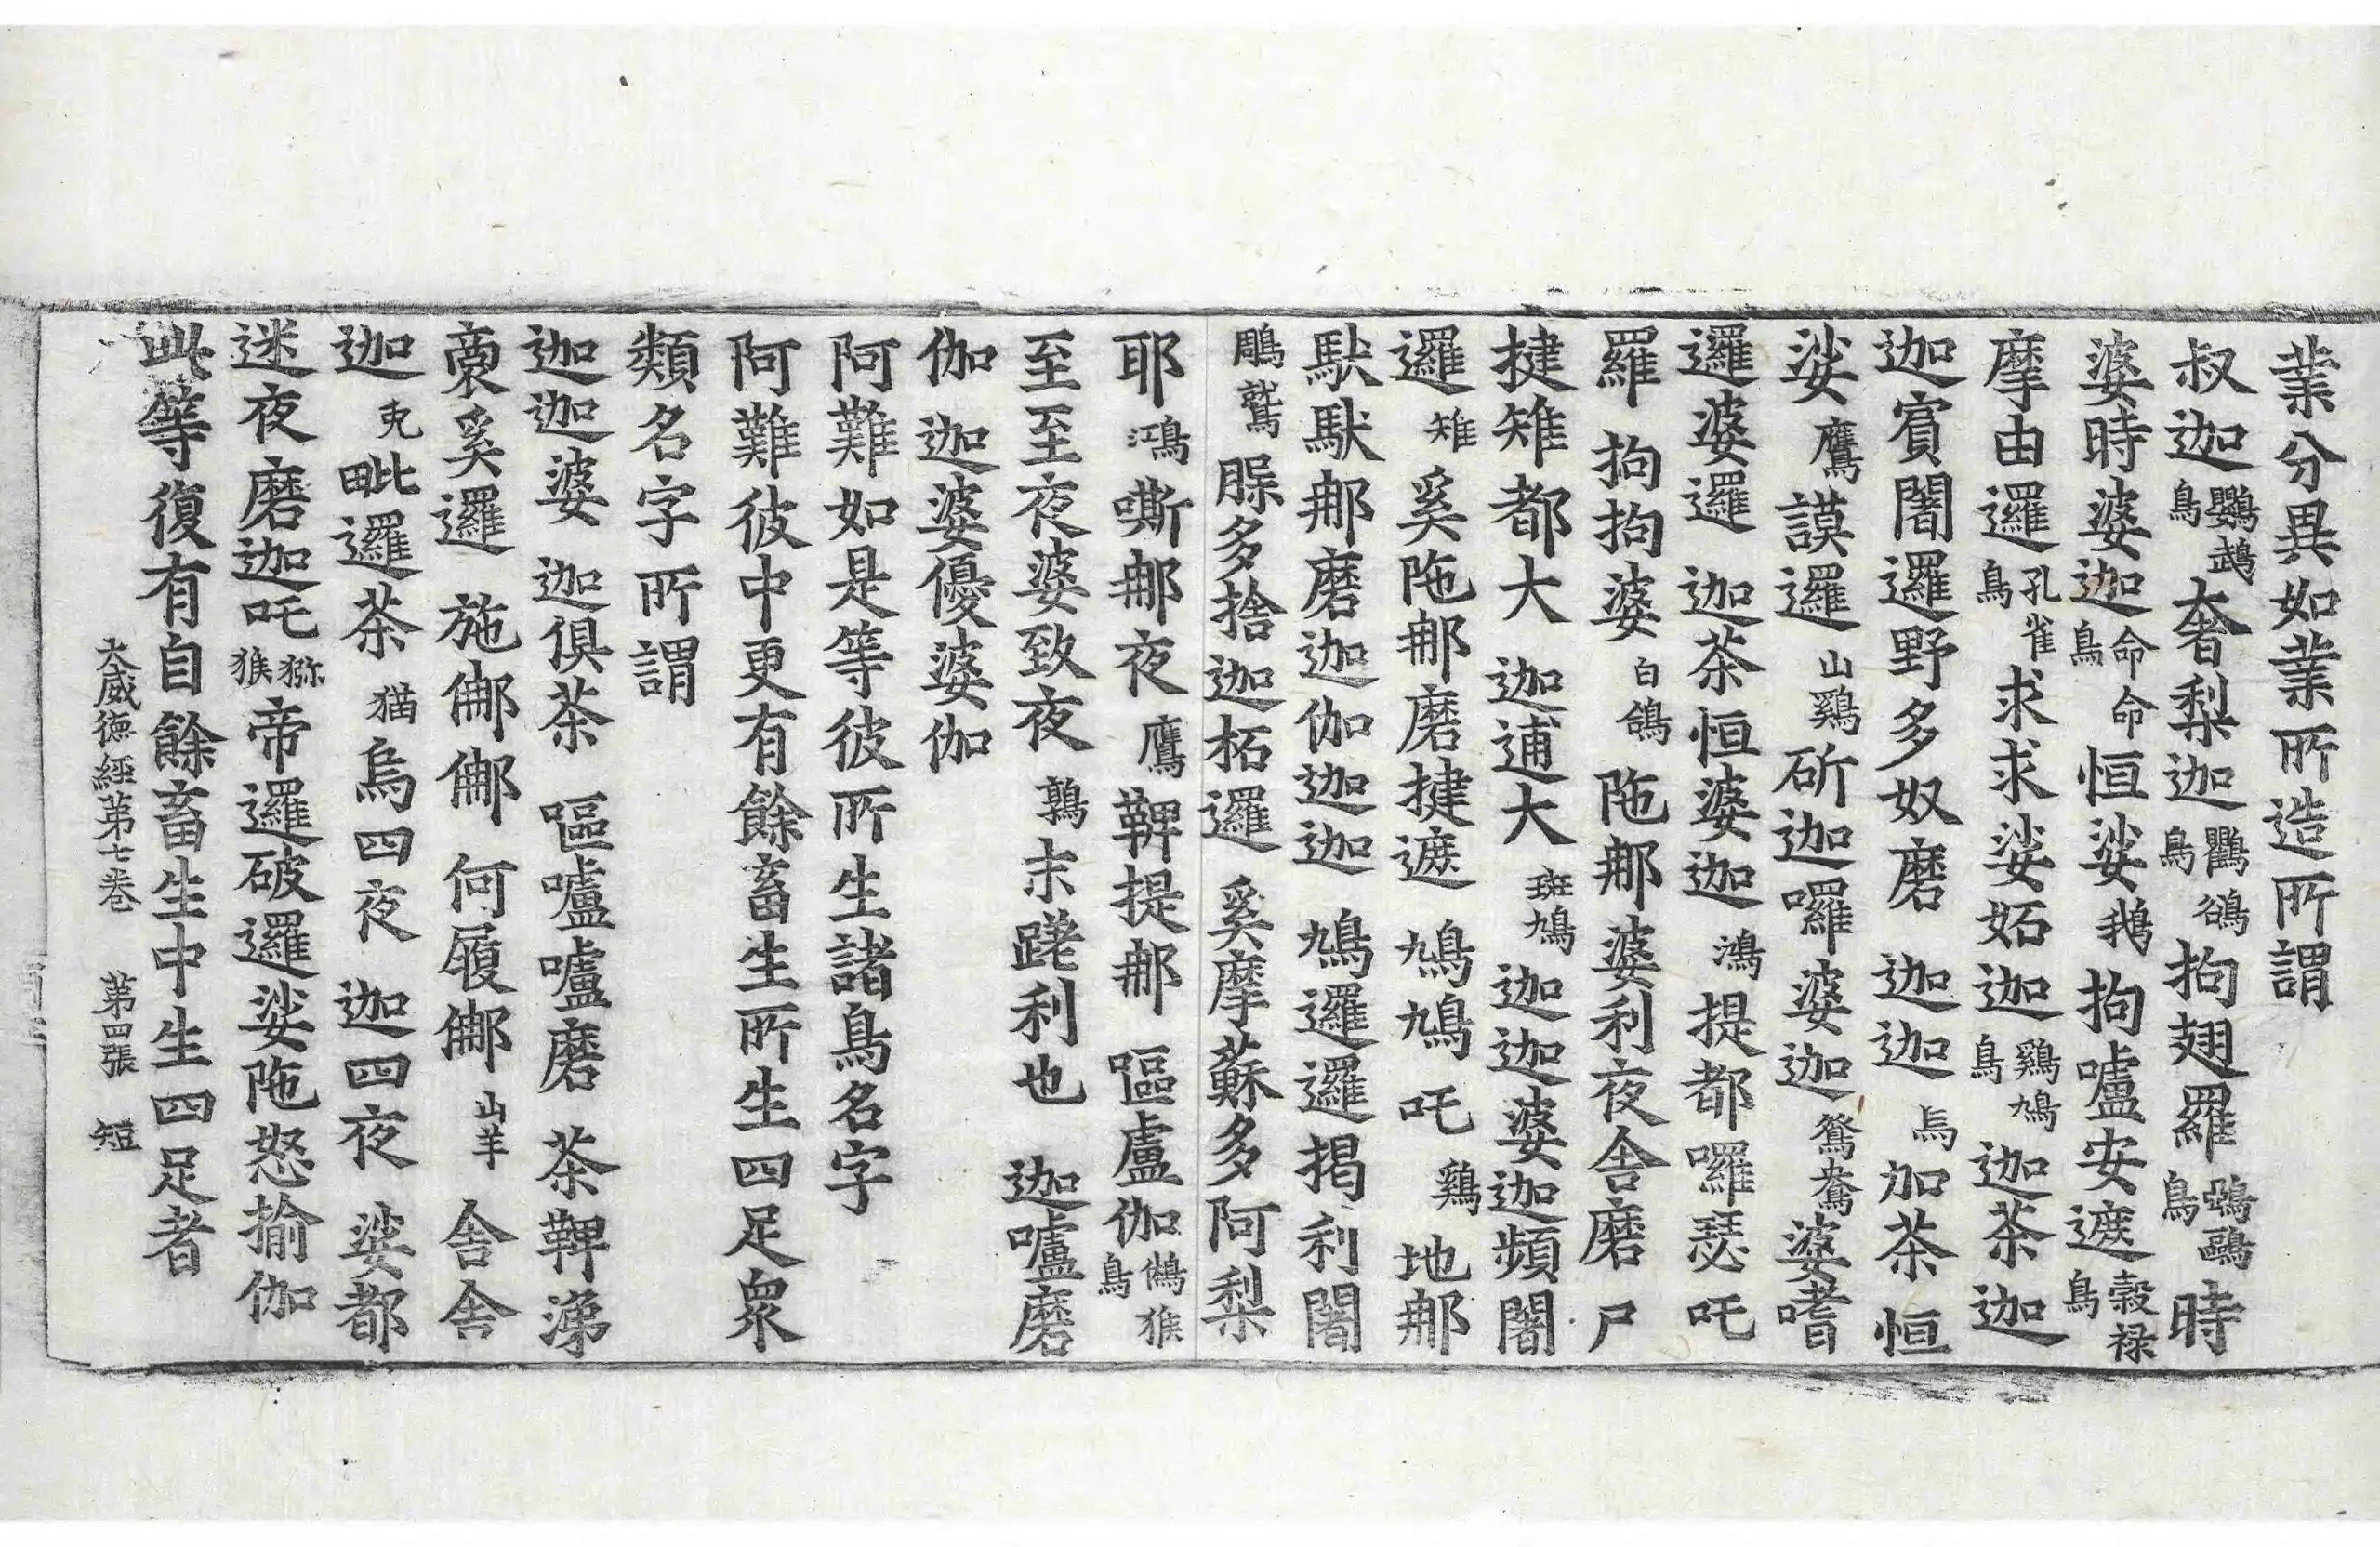 業分異如業所造所謂
叔迦鸚鵡鳥奢梨迦鸜鵒鳥拘翅羅鵶鷊鳥時
婆時婆迦命命鳥恒娑鵝拘嚧安遮穀祿鳥
摩由邏孔雀鳥求求娑妬迦鷄鳩鳥迦荼迦
迦賓闍邏野多奴磨 迦迦烏加荼 恒
娑鷹謨邏山鷄斫迦囉婆迦鴛鴦婆嗜
邏婆邏 迦荼恒婆迦鴻提都囉瑟吒
羅 拘拘婆白鴿陁那婆利夜舍磨 尸
揵雉都大 迦逋大班鳩迦迦婆迦頻闍
邏雉奚陁那磨揵遮 鳩鳩吒鷄地那
馱馱那磨迦伽迦迦 鳩邏邏揭利闍
鵰鷲脲多捨迦柘邏 奚摩蘇多阿梨
耶鴻嘶那夜鷹鞞提那 嘔盧伽鵂猴鳥
至至夜婆致夜鶉末蹉利也 迦嚧磨
伽 迦婆優婆伽
阿難如是等彼所生諸鳥名字
阿難彼中更有餘畜生所生四足眾
類名字所謂
迦迦婆 迦俱荼 嘔嚧嚧磨 荼鞞涕
裔奚邏 施㖠㖠 何履㖠山羊 舍舍
迦兎毗邏荼猫烏四夜 迦四夜 娑都
迷夜磨迦吒獼猴帝邏破邏娑陁怒揄伽
此等復有自餘畜生中生四足者
大威德經第七卷 第四張 短